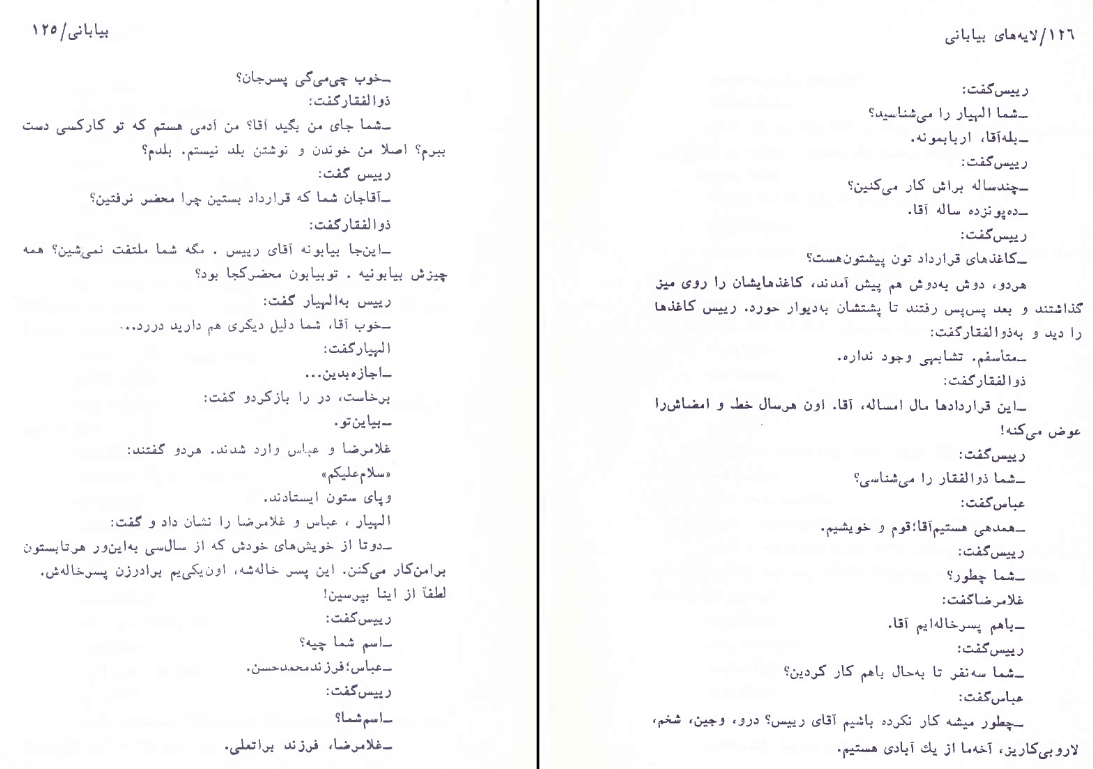 بیابانی/۱۲۵
ــخوب چی‌می‌گی پسرجان؟
ذوالفقارگفت:
ــشما جای من بگید آقا؟ من آدمی هستم که تو کارکسی دست
ببرم؟ اصلا من خوندن و نوشتن بلد نیستم. بلدم؟
رییس گفت:
ــآقاجان شما که قرارداد بستین چرا محضر نرفتین؟
ذوالفقارگفت:
ــاین‌جا بیابونه آقای رییس . مگه شما ملتفت نمی‌شین؟ همه
چیزش بیابونیه . توبیابون محضرکجا بود؟
رییس به‌الهیار گفت:
ــخوب آقا، شما دلیل دیگری هم دارید دررد...
الهیارگفت:
ــاجازه‌بدین...
برخاست، در را بازکردو گفت:
ــبیاین‌تو.
غلامرضا و عباس وارد شدند. هردو گفتند:
«سلام‌علیکم»
وپای ستون ایستادند.
الهیار ، عباس و غلامرضا را نشان داد و گفت:
ــدوتا از خویش‌های خودش که از سال‌سی به‌این‌ور هرتابستون
برامن‌کار می‌کنن. این پسر خاله‌شه، اون‌یکی‌یم برادرزن پسرخاله‌ش.
لطفاً از اینا بپرسین!
رییس‌گفت:
ــاسم شما چیه؟
ــعباس؛فرزندمحمدحسن.
رییس‌گفت:
ــاسم‌شما؟
ــغلامرضا، فرزند براتعلی.
۱۲۶/لایه‌های بیابانی
رییس‌گفت:
ــشما الهیار را می‌شناسید؟
ــبله‌آقا، اربابمونه.
رییس‌گفت:
ــچندساله براش کار می‌کنین؟
ــده‌پونزده ساله آقا.
رییس‌گفت:
ــکاغذهای قرارداد تون پیشتون‌هست؟
هردو، دوش به‌دوش هم پیش آمدند، کاغذهایشان را روی میز
گذاشتند و بعد پس‌پس رفتند تا پشتشان به‌دیوار خورد. رییس کاغذها
را دید و به‌ذوالفقارگفت:
ــمتأسفم. تشابهی وجود نداره.
ذوالفقارگفت:
ــاین قراردادها مال امساله، آقا. اون هرسال خط و امضاش‌را
عوض می‌کنه!
رییس‌گفت:
ــشما ذوالفقار را می‌شناسی؟
عباس‌گفت:
ــهمدهی هستیم‌آقا؛قوم و خویشیم.
رییس‌گفت:
ــشما چطور؟
غلامرضاگفت:
ــباهم پسرخاله‌ایم آقا.
رییس‌گفت:
ــشما سه‌نفر تا به‌حال باهم کار کردین؟
عباس‌گفت:
ــچطور میشه کار نکرده باشیم آقای رییس؟ درو، وجین، شخم،
لاروبی‌کاریز، آخه‌ما از یك آبادی هستیم.